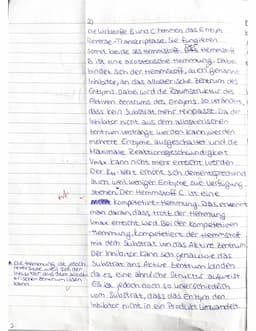 2)
Die Wirkstoffe B und C hemmen das Enzym
Reverse-Transcriptase. Sie fungieren
somit beide als Hemmstoff. Hemmstoff
B ist eine allosterische Hemmung. Dabei
bindet sich der Hemmstoff, auch genannt
Inhibitor, an das allosterische Zentrum des
Enzyms. Dabei wird die Raumstruktur des
Aktiven Zentrums des Enzyms so verändert,
dass kein Substrat mehr hineinpasst. Da der
Inhibitor nicht aus dem allosterischen
Zentrum verdrängt werden kann werden
mehrere Enzyme ausgeschaltet und die
Maximale Reaktionsgeschwindigkeit
Vmax kann nicht mehr erreicht werden.
Der Km-Wert erhöht sich dementsprechend
auch weil weniger Enzyme zur Verfügung
stehen. Der Hemmstoff C ist eine
kompetitive-Hemmung. Das erkennt
man daran, dass trotz der Hemmung
Vmax erreicht wird. Bei der kompetitiven
-Hemmung, kompetitiert der Hemmstoff
mit dem Substrat um das Aktive Zentrum.
Der Inhibitor kann sich genau wie das
Substrat ans Aktive Zentrum binden
da es eine ähnliche Struktur aufweist
Es ist jedoch noch so unterschiedlich
vom Substrat, dass das Enzym den
Inhibitor nicht in ein Produkt umwandelt
Die Hemmung ist jedoch
reversibel weil sich der
Inhibitor aus dem
Zentrum lösen
kann.